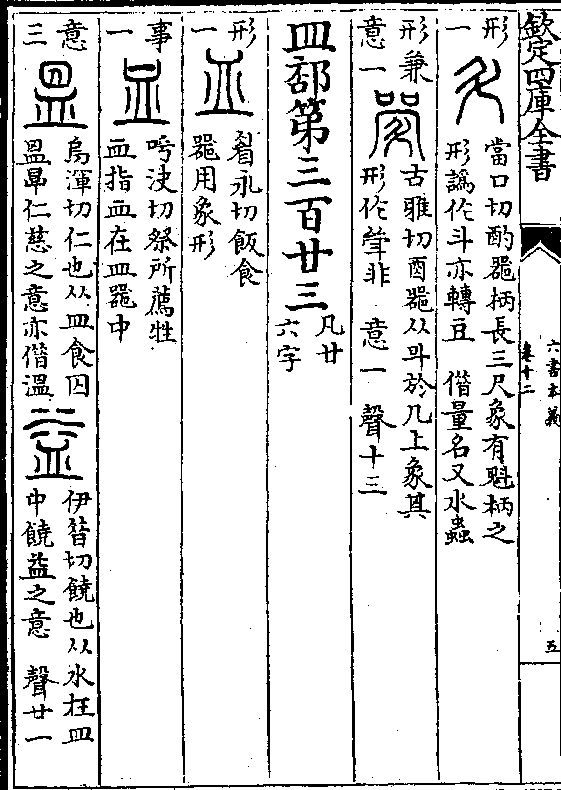 欽定四庫全書
六書本義
卷十二
五
形一
當口切酌器柄長三尺象有魁柄之
形譌作斗亦轉豆 借量名又水蟲
形兼意一
古雅切酉器从斗於几上象其
形作斝非 意一 聲十三
皿部第三百廿三
凡廿
六字
形一
皿
眉永切飯食
器用象形
事一
血
呼決切祭所薦牲
血指血在皿器中
意三
昷
烏渾切仁也从皿食囚
昷昂仁慈之意亦借溫
益
伊昔切饒也从水在皿
中饒益之意 聲廿一